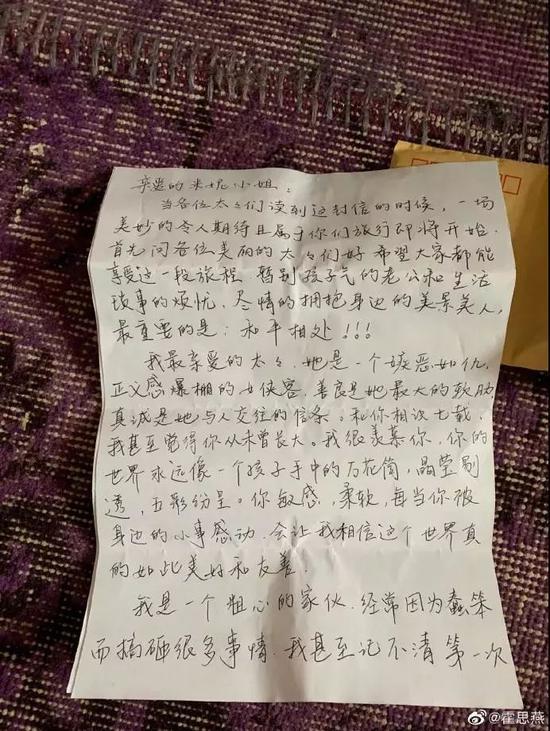 亲爱的米妮小姐：
当各位太太们读到这封信的时候，一场
美妙的令人期待且属于你们旅行即将开始.
首先问各位美丽的太太们好 希望大家都能
享受这一段旅程. 暂别孩子气的老公和生活
琐事的烦忧. 尽情的拥抱身边的美景美人,
最重要的是：和平相处!!!
我最亲爱的太太. 她是一个嫉恶如仇,
正义感爆棚的女侠客. 善良是她最大的软肋.
真诚是她与人交往的信条. 和你相识七载.
我甚至觉得你从未曾长大。我很羡慕你, 你的
世界永远像一个孩子手中的万花筒, 晶莹剔
透, 五彩纷呈。你敏感, 柔软, 每当你被
身边的小事感动. 会让我相信这个世界真
的如此美好和友善.
我是一个粗心的家伙. 经常因为蠢笨
而搞砸很多事情. 我甚至记不清第一次
@霍思燕